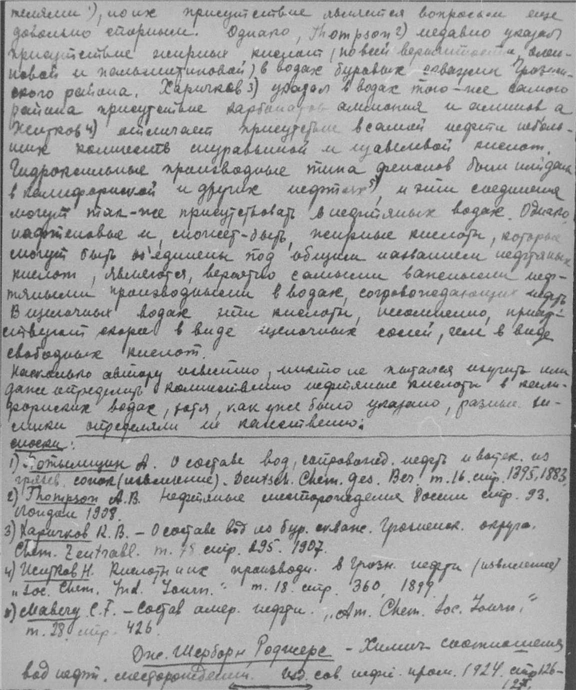 телями 1), но их присутствие является вопросом еще
довольно спорным. Однако, Thompson 2) недавно указал
присутствие жирных кислот (по всей вероятности, олеи-
новой и пальмитиновой) в водах буровых скважин Грознен-
ского района. Харичков 3) указал в водах того-же самого
района присутствие карбонатов аммония и аминов а
4) отмечает присутствие в самой нефти неболь-
ших количеств муравьиной и щавелевой кислот.
Гидроксильные производные типа фенолов были найдены
в калифорнской и других нефтях 5), и эти соединения
могут так-же присутствовать в нефтяных водах. Однако,
нафтеновые и, может-быть, жирные кислоты, которые
могут быть об'единены под общим названием нефтяных
кислот, являются, вероятно самыми важными неф-
тяными производными в водах, сопровождающих нефть
В щелочных водах эти кислоты, несомненно, присут-
ствуют скорее в виде щелочных солей, чем в виде
свободных кислот.
Насколько автору известно, никто не пытался изучить или
даже определить количественно нефтяные кислоты в кали-
форнских водах, хотя, как уже было указано, разные хи-
мики определяли их качественно.
сноски:
1) Потылицин А. О составе вод, сопровожд. нефть и вытек. из
грязев. сопок (извлечение). Deutsch. Chem. Ges. Ber. т. 16. стр. 1395, 1883.
2) Thompson А.В. Нефтяные месторождения России стр. 93.
Лондон 1908.
3) Харичков К.В. – О составе вод из бур. скваж. Грозненск. округа.
Chem. Zentralbl. т. 78 стр. 295. 1907.
4) Н. Кислоты и их производн. в Грозн. нефти (извлечение)
„Soc. Chem. Ind. Journ." т. 18. стр. 360, 1899.
5) Mabery C.F. – Состав амер. нефти. „Am. Chem. Soc. Journ."
т. 28, стр. 426.
Дж. Шерборн Роджерс – Химич. соотношения
вод нефт. месторождений. Изд. сов. нефт. пром. 1924. стр 126-
127.